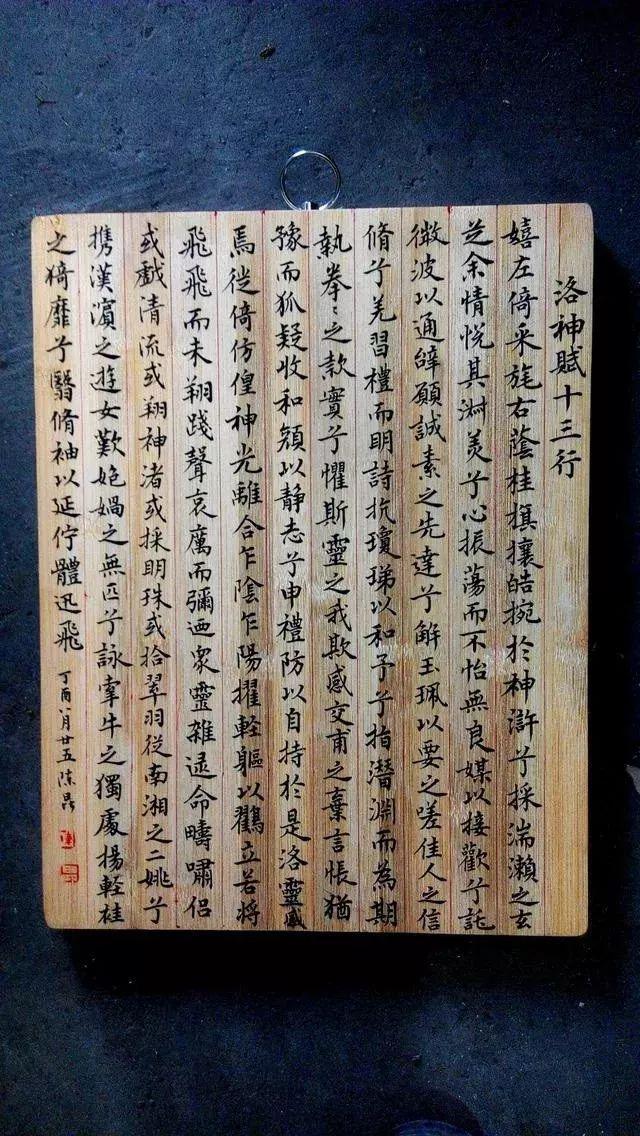 洛神賦十三行
嬉左倚采旄右蔭桂旗攘皓捥於神滸兮採湍瀨之玄
芝余情悅其淋美兮心振蕩而不怡無良媒以接歡兮託
微波以通辭願誠素之先達兮解玉珮以要之嗟佳人之信
脩兮羌習禮而明詩抗瓊珶以和予兮指潛淵而為期
執拳〻之款實兮懼斯靈之我欺感交甫之棄言悵猶
豫而狐疑收和顏以静志兮申禮防以自持於是洛靈感
焉徙倚仿偟神光離合乍陰乍陽擢軽軀以鶴立若將
飛飛而未翔踐聲哀厲而彌迺衆靈雜遝命疇嘯侶
或戲清流或翔神渚或採明珠或拾翠羽從南湘之二姚兮
携漢濱之遊女歎媧之無匹兮詠牽牛之獨處揚軽袿
之猗靡兮翳脩袖以延佇體迅飛
丁酉八月廿五陈